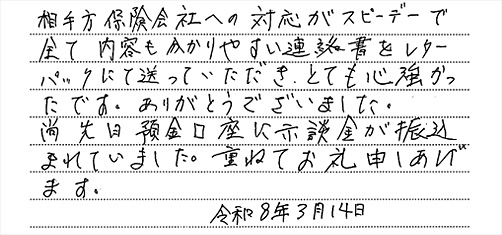 相手方保険会社への対応がスピーデーで
全て内容もわかりやすい連絡書をレター
パックにて送っていただき、とても心強かっ
たです。ありがとうございました。
尚先日預金口座に示談金が振込
まれていました。重ねてお礼申しあげ
ます。
令和8年3月14日